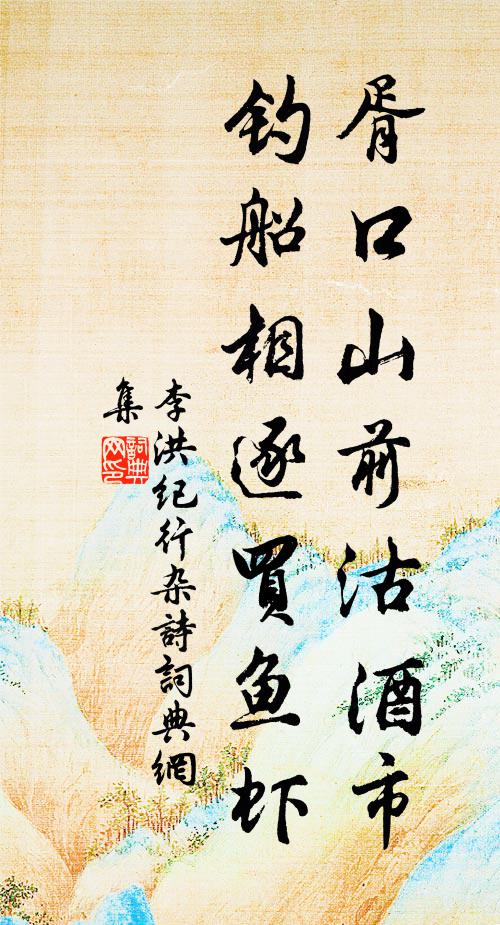 胥口山前沽酒市
钓船相逐買鱼虾
李洪纪行杂詩詞典網
集
詞典网印